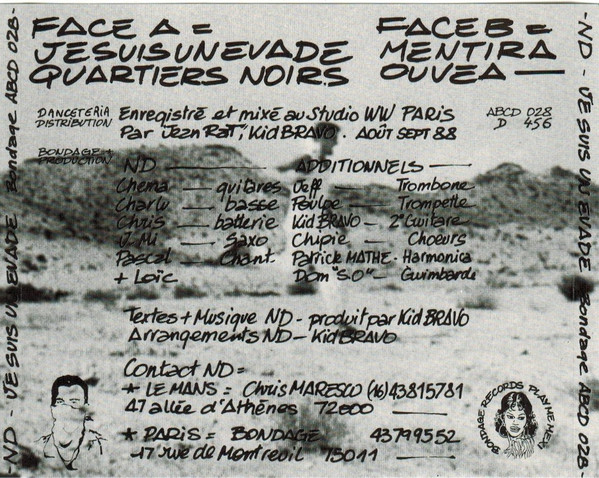 FACE A =
JE SUIS UN EVADE
QUARTIERS NOIRS
FACE B =
MENTIRA
OUVEA
DANCETERIA
DISTRIBUTION
BONDAGE +
PRODUCTION
Enregistré et mixé au Studio WW PARIS
Par "Jean RaT", Kid BRAVO. AOÛT SEPT 88
ABCD 028
D 456
ND
Chema — guitares
Charlu — basse
Chris — batterie
J. Mi — Saxo
Pascal — Chant
+ Loïc
ADDITIONNELS
Jeff — Trombone
Poulpe — Trompette
Kid BRAVO — 2e Guitare
Chipie — Choeurs
Patrick MATHE - Harmonica
Dom "S.O" — Guimbarde
Textes + Musique ND - produit par Kid BRAVO
Arrangements ND - Kid BRAVO
Contact ND =
* LE MANS = Chris MARESCO (16) 43815781
47 allée d'Athènes 72000
* PARIS = BONDAGE 43799552
17 rue de Montreuil 75011
BONDAGE RECORDS PLAY ME HEXI
-ND - JE SUIS UN EVADE Bondage ABCD 028-
-ND - JE SUIS UN EVADE Bondage ABCD 028-